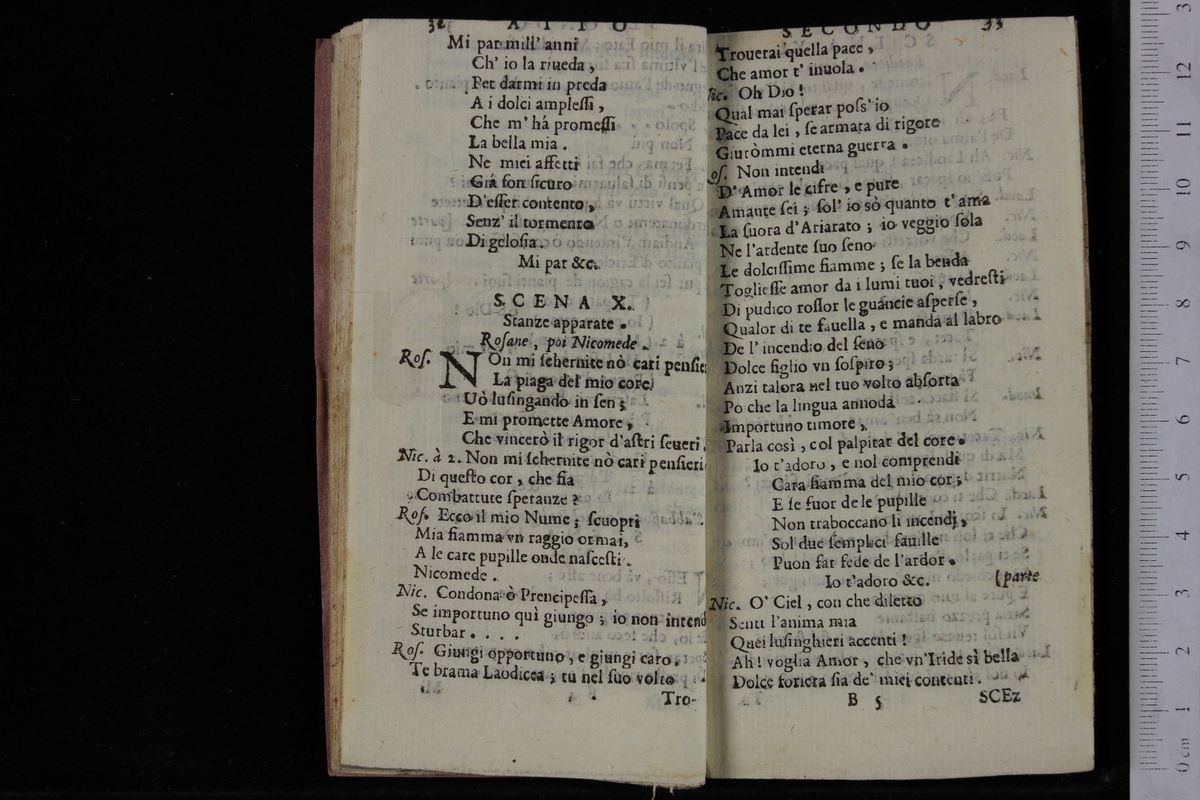 32 ATTO
Mi par mill' anni
Ch' io la riueda,
Per darmi in preda
A i dolci ampleſſi,
Che m' há promeſſi
La bella mia.
Ne miei affetti
Giá ſon ſicuro
D'eſſer contento,
Senz' il tormento
Di geloſia.
Mi par &c.
SCENA X.
Stanze apparate.
Roſane, poi Nicomede.
Roſ. NOn mi ſchernite nò cari penſie
La piaga del mio core
Uò luſingando in ſen;
E mi promette Amore,
Che vincerò il rigor d'aſtri ſeueri.
Nic. à 2. Non mi ſchernite nò cari penſieri
Di queſto cor, che ſia
Combattute ſperanze?
Roſ. Ecco il mio Nume; ſcuoprì
Mia fiamma vn raggio ormai,
A le care pupille onde naſceſti.
Nicomede.
Nic. Condona ò Prencipeſſa,
Se importuno quì giungo; io non intend
Sturbar. . . .
Roſ. Giungi opportuno, e giungi caro.
Te brama Laodicea; tu nel ſuo volto
Tro-
SECONDO 33
Trouerai quella pace,
Che amor t' inuola.
Nic. Oh Dio!
Qual mai ſperar poſs' io
Pace da lei, ſe armata di rigore
Giuròmmi eterna guerra.
oſ. Non intendi
D' Amor le cifre, e pure
Amante ſei; ſol' io sò quanto t' ama
La ſuora d' Ariarato; io veggio ſola
Ne l'ardente ſuo ſeno
Le dolciſſime fiamme; ſe la benda
Toglieſſe amor da i lumi tuoi, vedreſti
Di pudico roſſor le guancie aſperſe,
Qualor di te fauella, e manda al labro
De l' incendio del ſeno
Dolce figlio vn ſoſpiro;
Anzi talora nel tuo volto abſorta
Po che la lingua annoda
Importuno timore,
Parla così, col palpitar del core.
Io t'adoro, e nol comprendi
Cara fiamma del mio cor;
E ſe fuor de le pupille
Non traboccano li incendj,
Sol due ſemplici fauille
Puon far fede de l'ardor.
Io t'adoro &c. (parte
Nic. O' Ciel, con che diletto
Senti l'anima mia
Quei luſinghieri accenti!
Ah! voglia Amor, che vn'Iride sì bella
Dolce foriera ſia de' miei contenti.
B 5 SCEz
0 cm 1 2 3 4 5 6 7 8 9 10 11 12 13